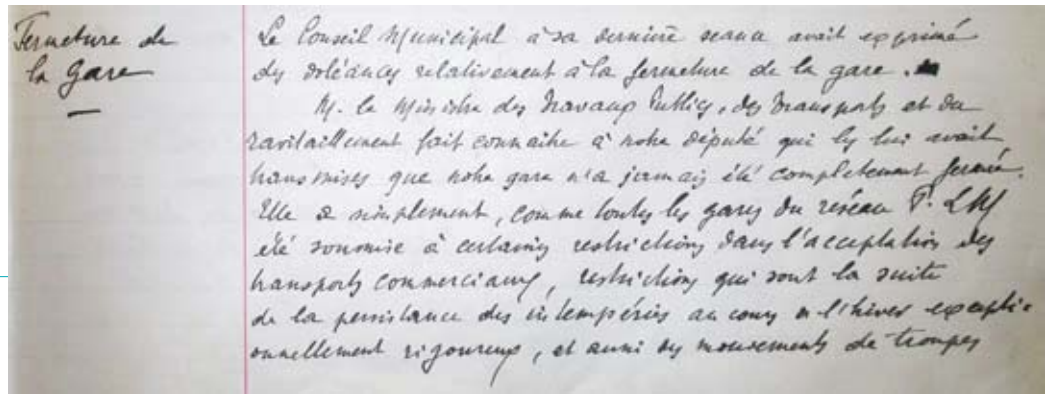 Fermeture de
la Gare
Le Conseil Municipal à sa dernière séance avait exprimé
des doléances relativement à la fermeture de la gare.
M. le Ministre des Travaux Publics, des Transports et du
ravitaillement fait connaître à notre député qui les lui avait
transmises que notre gare n'a jamais été complètement fermée.
Elle a simplement, comme toutes les gares du réseau P. L M
été soumise à certaines restrictions dans l'acceptation des
transports commerciaux, restrictions qui sont la suite
de la persistance des intempéries au cours de l'hiver excepti-
onnellement rigoureux, et aussi des mouvements de troupes